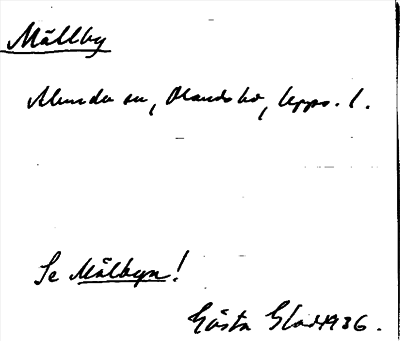 Mällby
Alunda sn, Olands hd, Upps. l.
Se Mälbyn!
Gösta Glad 1936.